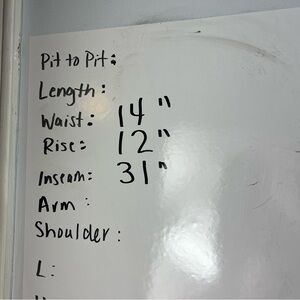 Pit to Pit:
Length:
Waist: 14"
Rise: 12"
Inseam: 31"
Arm :
Shoulder :
L: